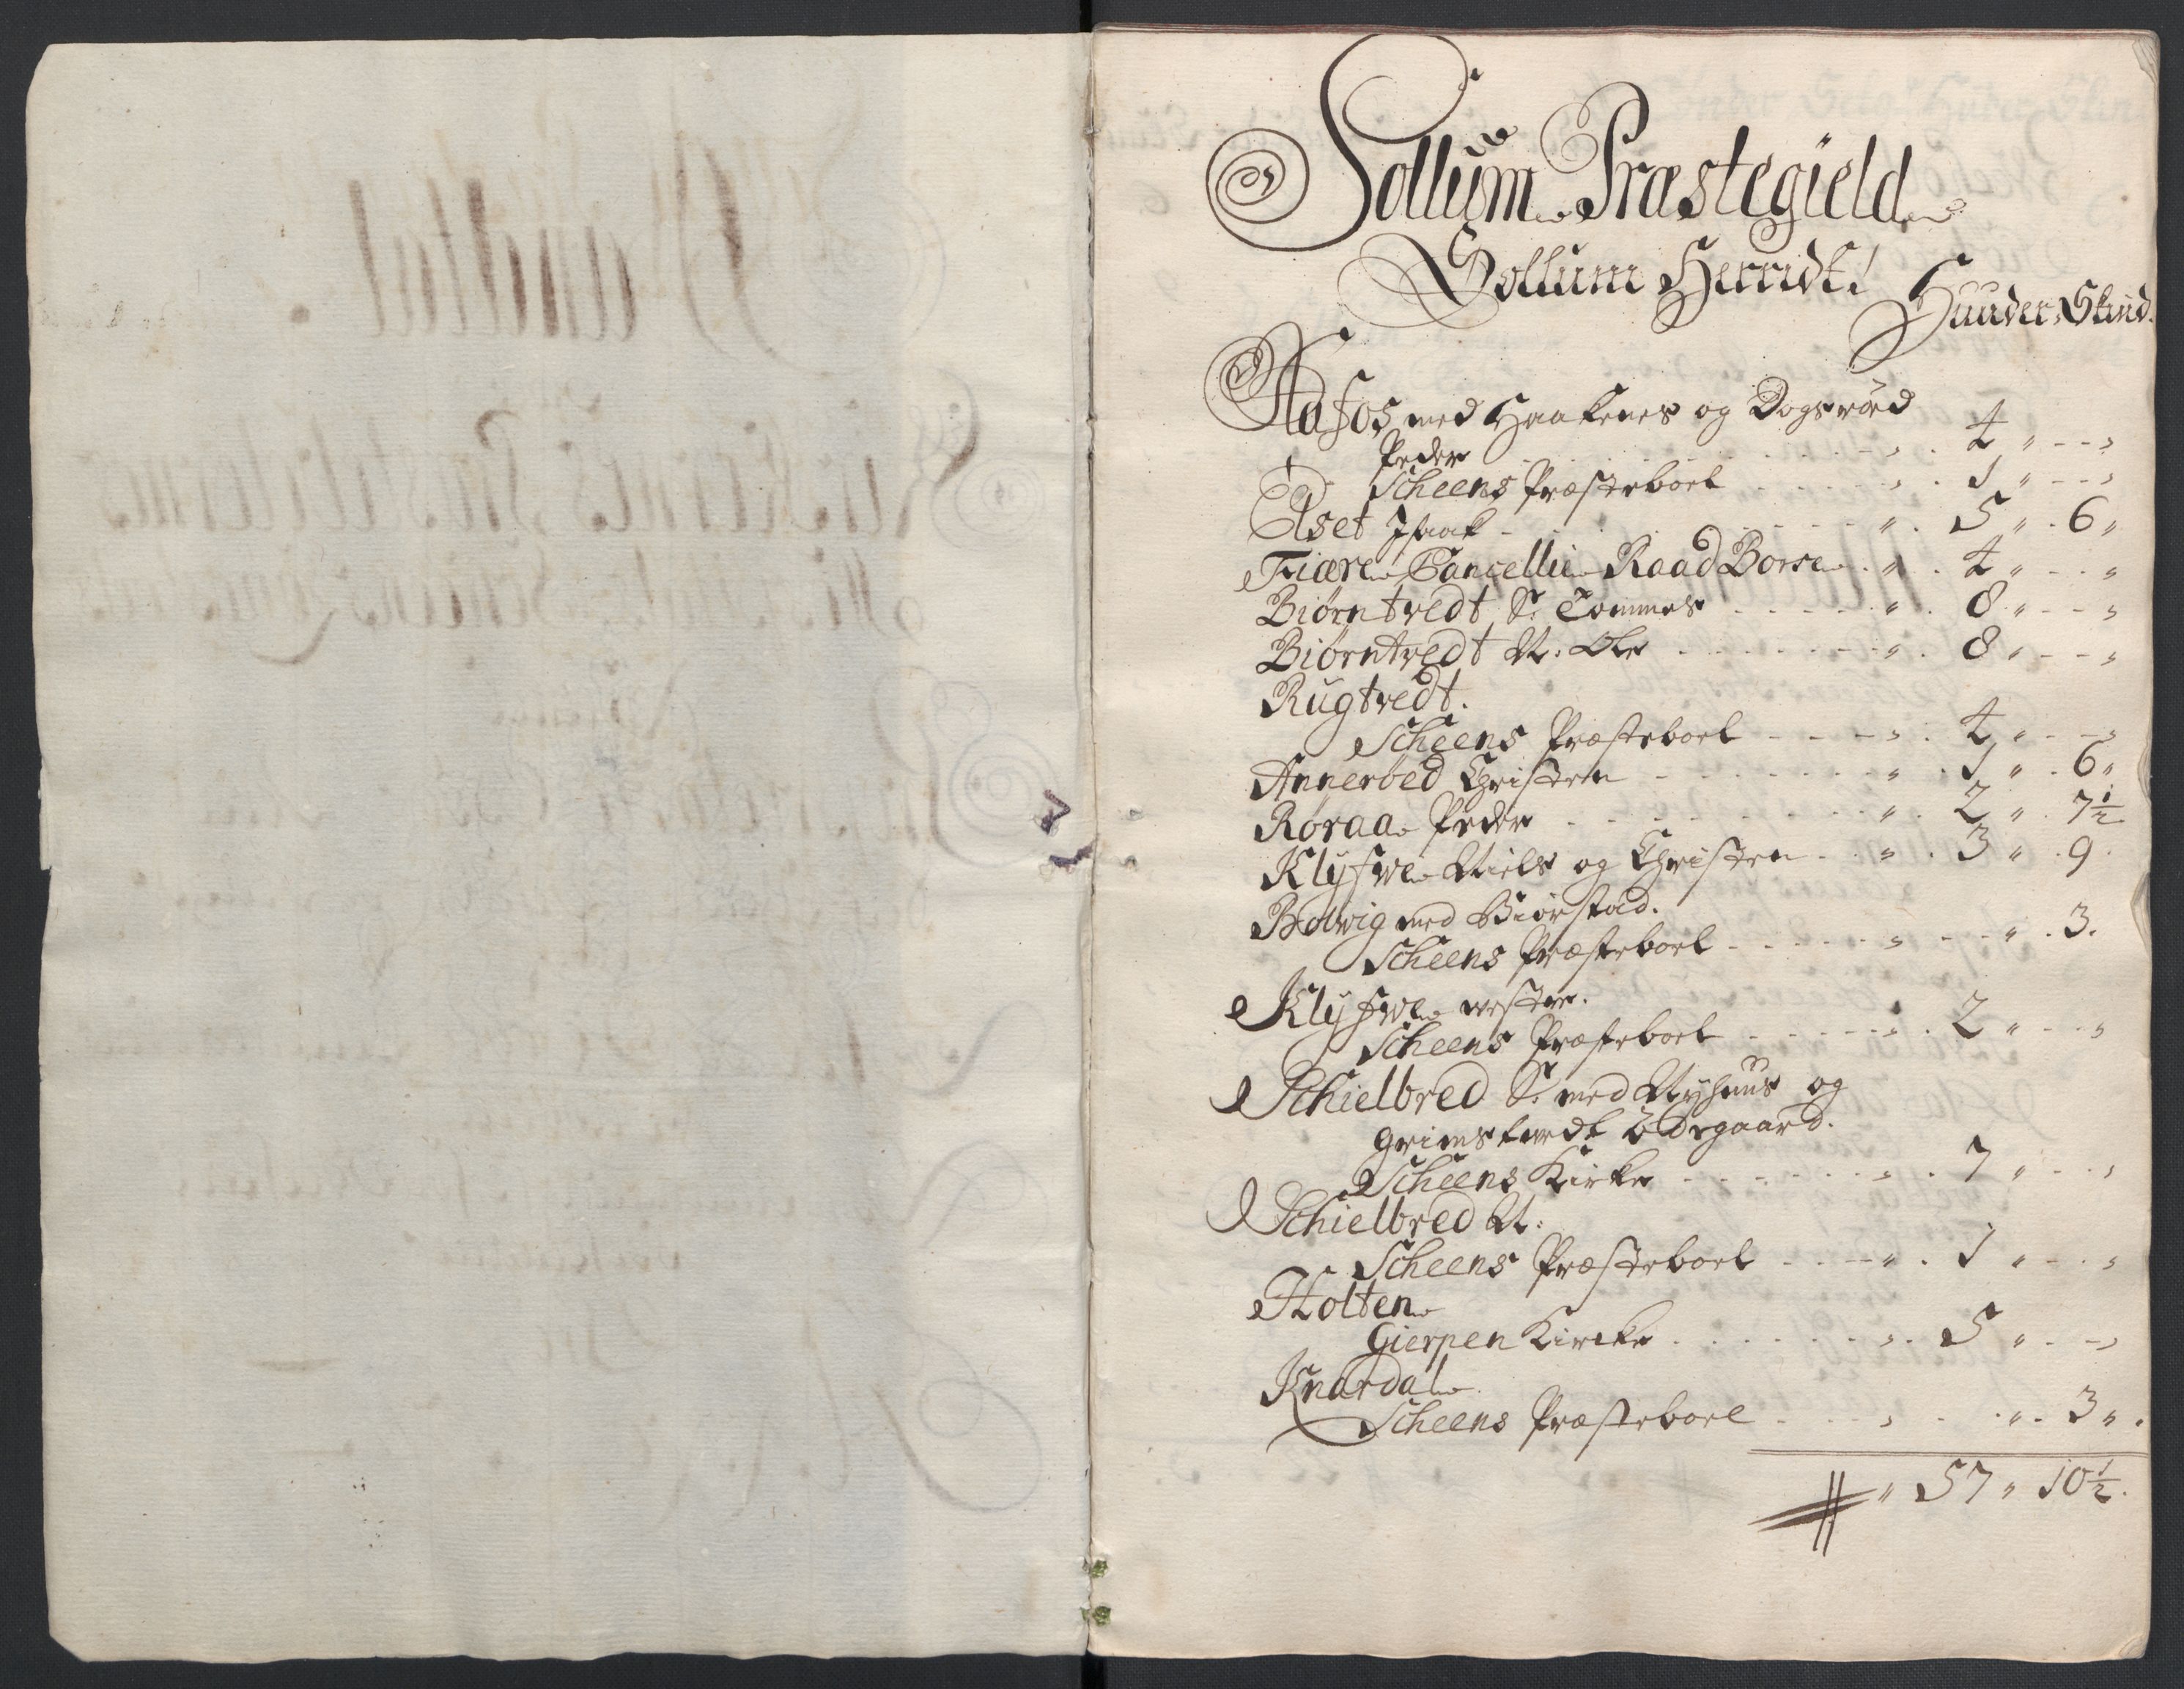 Sollum Præstegield
Sollum Herridt!
Huuder, Skind.
Aafos med Haakenes og Dogsröed
Peder " 4 " - - "
Scheens Præsteboel " 1 " - - "
Aset Isaak " 5 " 6 "
Fiære Cancellie Raad Borse " 4 " - - "
Biørntvedt S: Tommes " 8 " - - "
Biørntvedt N: Ole " 8 " - - "
Rugtvedt.
Scheens Præsteboel " 4 " - - "
Annerøed Christen " 1 " 6 "
Røraa Peder " 2 " 7 1/2
Klyfwe Niels og Christen " 3 " 9
Bolvig med Biørstad.
Scheens Præsteboel " - " 3.
Klyfwe vester.
Scheens Præsteboel " 2 " - - "
Schielbred S: med Nyhuus og
Grimstvedt Ödegaard.
Scheens Kirke " 7 " - - "
Schielbred N:
Scheens Præsteboel " 1 " - - "
Holten
Gierpen Kircke " 5 " - - "
Knardal
Scheens Præsteboel " - " 3 "
" 57 " 10 1/2.